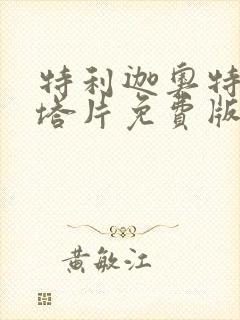 特利迦奥特
塔片免費版
黄敏江